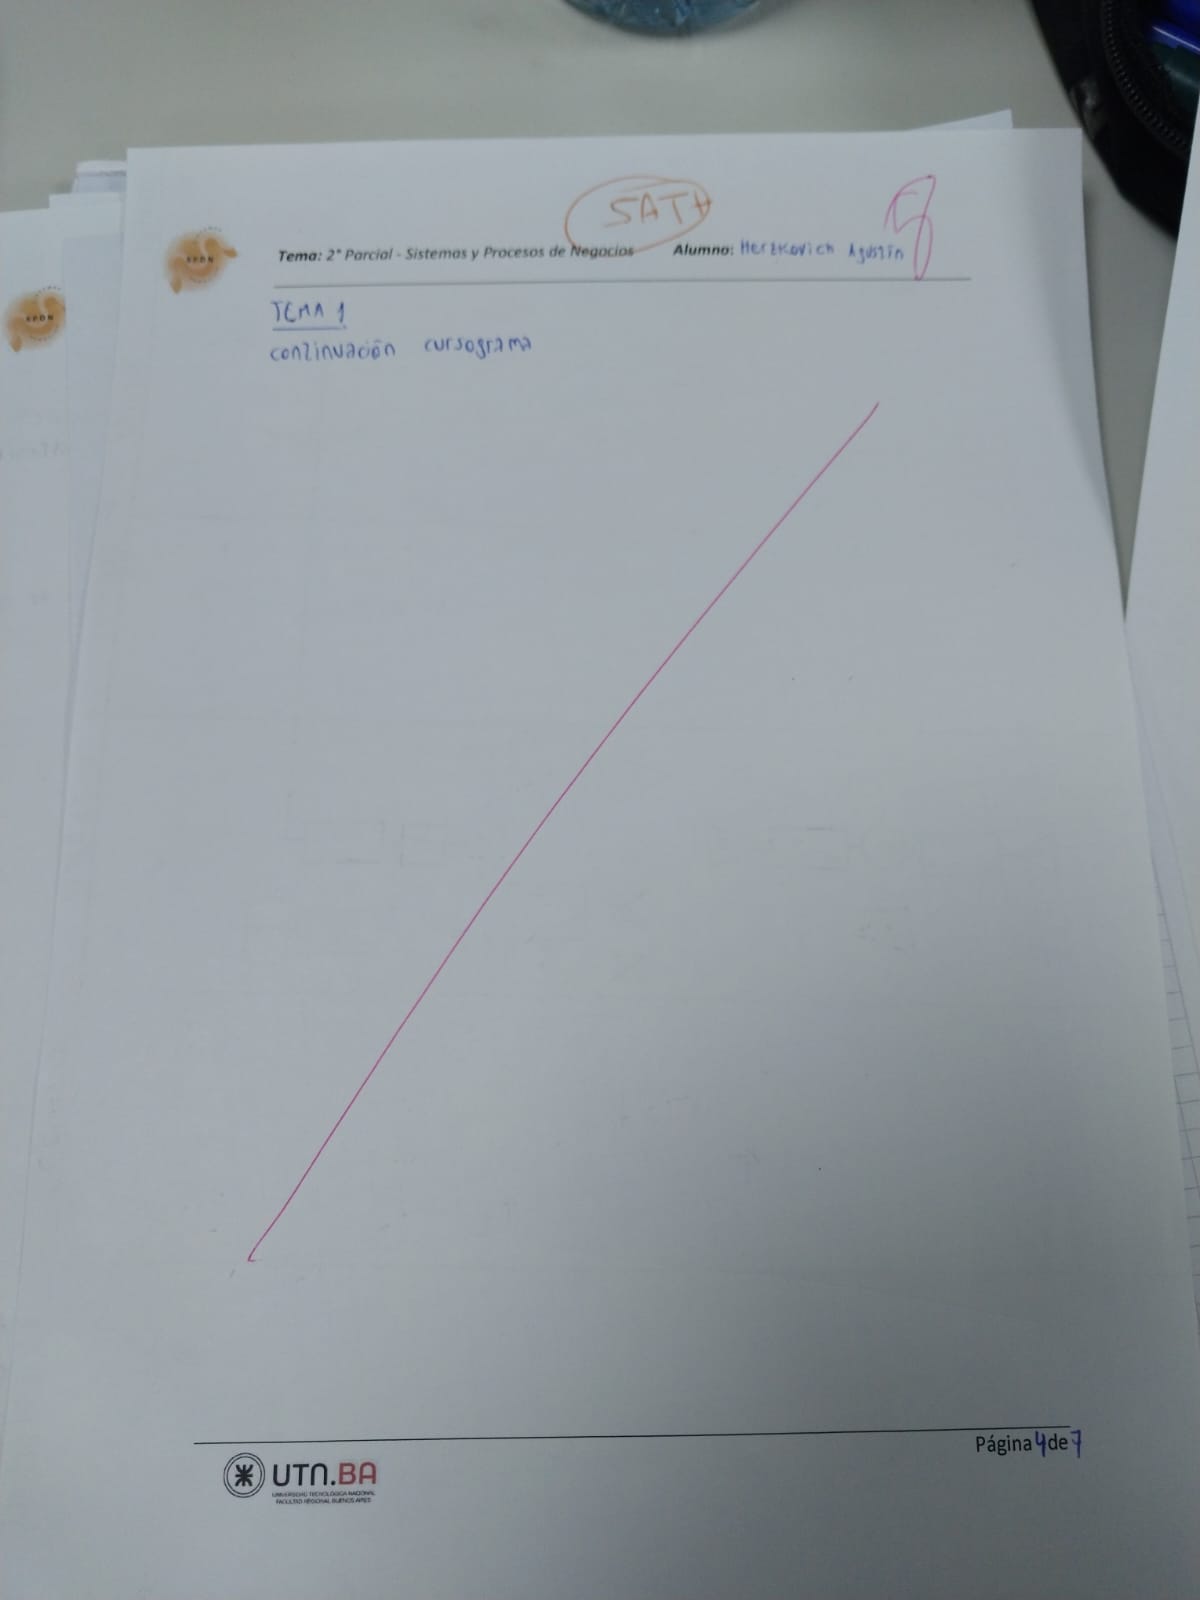 SAT+
Tema: 2° Parcial - Sistemas y Procesos de Negocios Alumno: Herzkovich Agustín
SPDN
SPDN
TEMA 1
continuación cursograma
Página 4 de 7
UTN.BA
UNIVERSIDAD TECNOLÓGICA NACIONAL
FACULTAD REGIONAL BUENOS AIRES